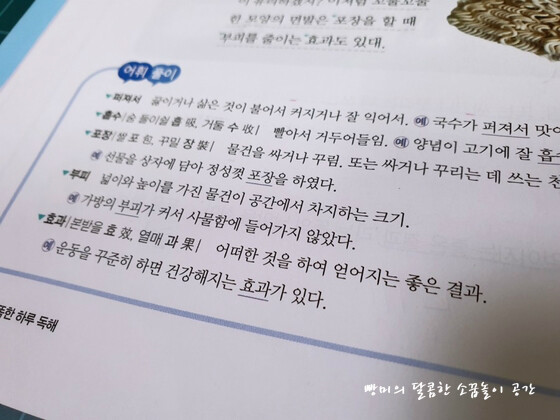 한 모양의 면발은 포장을 할 때
부피를 줄이는 효과도 있대.
어휘 풀이
▼퍼져서 끓이거나 삶은 것이 불어서 커지거나 잘 익어서. 예 국수가 퍼져서 맛이
▼흡수|숨 들이쉴 흡 吸, 거둘 수 收| 빨아서 거두어들임. 예 양념이 고기에 잘 흡
▼포장|쌀 포 包, 꾸밀 장 裝| 물건을 싸거나 꾸림. 또는 싸거나 꾸리는 데 쓰는 천
예 선물을 상자에 담아 정성껏 포장을 하였다.
▼부피 넓이와 높이를 가진 물건이 공간에서 차지하는 크기.
예 가방의 부피가 커서 사물함에 들어가지 않았다.
▼효과|본받을 효 效, 열매 과 果| 어떠한 것을 하여 얻어지는 좋은 결과.
예 운동을 꾸준히 하면 건강해지는 효과가 있다.
똑한 하루 독해
빵미의 달콤한 소꿉놀이 공간